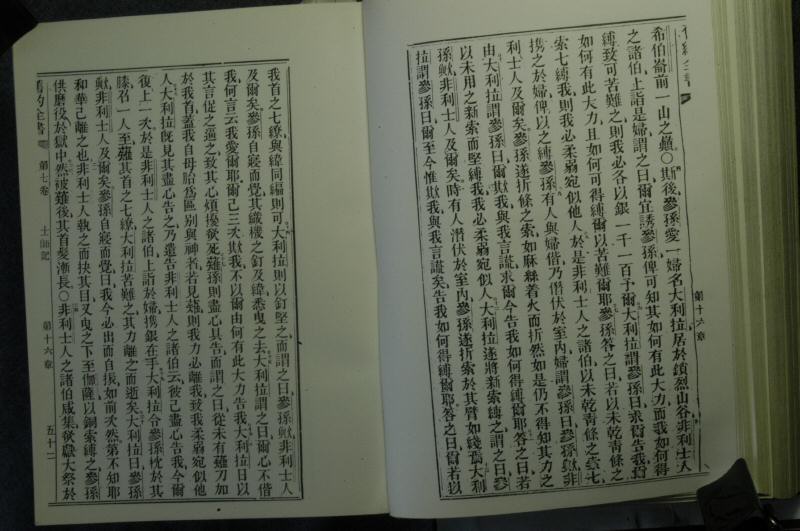 希伯崙前一山之巔○斯後參孫愛一婦名大利拉居於鎖烈山谷非利士人
之諸伯上詣是婦謂之曰爾宜誘參孫俾可知其如何有此大力而我如何得
縛致可苦難之則我必各以銀一千一百予爾大利拉謂參孫曰求爾告我爾
如何有此大力且如何可得縛爾以苦難爾耶參孫答之曰若以未乾青條之
索七縛我則我必柔弱宛似他人於是非利士人之諸伯以未乾青條之索七
攜之於婦俾以之縛參孫有人與婦偕乃潛伏於室內婦謂參孫曰參孫歟非
利士人及爾矣參孫遂折斷條之索如麻絲着火而折然如是仍不得知其力之
由大利拉謂參孫曰爾欺我與我言謊求爾今告我如何得縛爾耶答之曰若
以未用之新索而堅縛我我必柔弱宛似人大利拉遂將新索縛之謂之曰參
孫歟非利士人及爾矣時有人潛伏於室內參孫遂折索於其臂如綫焉大利
拉謂參孫曰爾至今惟欺我與我言謊矣告我如何得縛爾耶答之曰爾若以
第十六章
我首之七繚與緯同編則可大利拉則以釘堅之而謂之曰參孫歟非利士人
及爾矣參孫自寢而覺其織機之釘及緯悉曳之去大利拉謂之曰爾心不偕
我何言云我愛爾耶爾已三次欺我不以爾由何有此大力告我大利拉日以
其言促之逼之致其心煩擾欲死薙孫則盡心其告而謂之曰從未有薙刀加
於我首蓋我自母胎爲區别與神者若見薙則我力必離我致我柔弱宛似他
人大利拉旣見其盡心告之乃遣告非利士人之諸伯云彼已盡心告我今爾
復上一次於是非利士人之諸伯上詣於婦攜銀在手大利拉令參孫枕於其
膝召一人至薙其首之七繚大利拉苦難之其力離之而逝矣大利拉曰參孫
歟非利士人及爾矣參孫自寢而覺曰我今必出而自振如前次然第不知耶
和華已離之也非利士人執之而抉其目又曳之下至伽薩以銅索縛之參孫
供磨役於獄中然被薙後其首髮漸長○非利士人之諸伯咸集欲獻大祭於
舊約全書 第七卷 士師記 第十六章 五十二